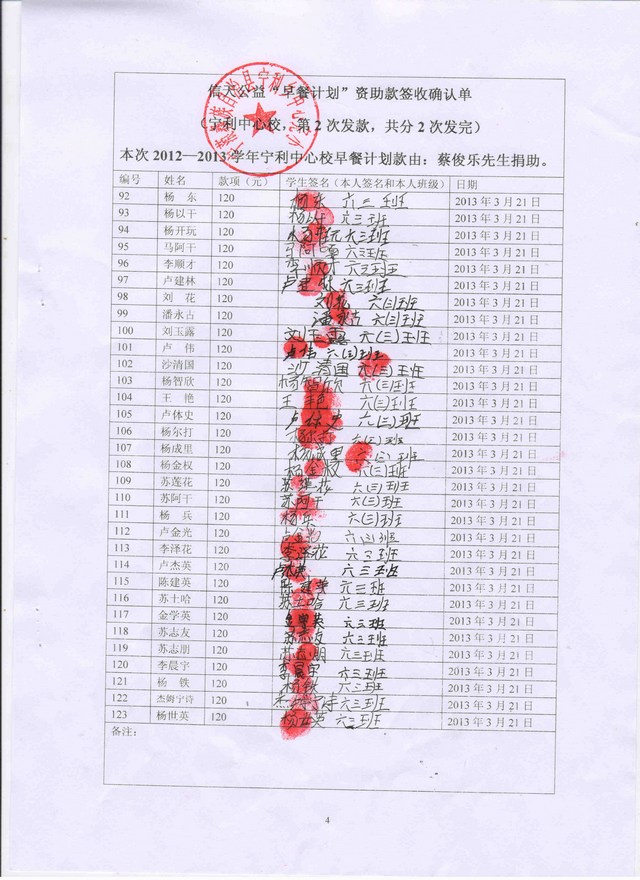 信天公益“早餐计划”资助款签收确认单
（宁利中心校，第 2 次发款，共分 2 次发完）
本次 2012—2013 学年宁利中心校早餐计划款由：蔡俊乐先生捐助。
编号 姓名 款项（元） 学生签名（本人签名和本人班级） 日期
92 杨 东 120 杨东 六三班 2013 年 3 月 21 日
93 杨以干 120 杨以干 六三班 2013 年 3 月 21 日
94 杨开玩 120 六三班 2013 年 3 月 21 日
95 马阿干 120 六三班 2013 年 3 月 21 日
96 李顺才 120 李顺才 六三班 2013 年 3 月 21 日
97 卢建林 120 卢建林 六三班 2013 年 3 月 21 日
98 刘 花 120 刘花 六(三)班 2013 年 3 月 21 日
99 潘永古 120 潘永古 六(三)班 2013 年 3 月 21 日
100 刘玉露 120 刘玉露 六(三)班 2013 年 3 月 21 日
101 卢 伟 120 卢伟 六(三)班 2013 年 3 月 21 日
102 沙清国 120 沙清国 六(三)班 2013 年 3 月 21 日
103 杨智欣 120 杨智欣 六(三)班 2013 年 3 月 21 日
104 王 艳 120 王艳 六(三)班 2013 年 3 月 21 日
105 卢体史 120 卢体史 六(三)班 2013 年 3 月 21 日
106 杨尔打 120 六(三)班 2013 年 3 月 21 日
107 杨成里 120 杨成里 六(三)班 2013 年 3 月 21 日
108 杨金权 120 杨金权 六(三)班 2013 年 3 月 21 日
109 苏莲花 120 苏莲花 六(三)班 2013 年 3 月 21 日
110 苏阿干 120 苏阿干 六(三)班 2013 年 3 月 21 日
111 杨 兵 120 杨兵 六(三)班 2013 年 3 月 21 日
112 卢金光 120 六(三)班 2013 年 3 月 21 日
113 李泽花 120 李泽花 六三班 2013 年 3 月 21 日
114 卢杰英 120 卢杰英 六三班 2013 年 3 月 21 日
115 陈建英 120 陈建英 六三班 2013 年 3 月 21 日
116 苏土哈 120 苏土哈 六三班 2013 年 3 月 21 日
117 金学英 120 金学英 六三班 2013 年 3 月 21 日
118 苏志友 120 苏志友 六三班 2013 年 3 月 21 日
119 苏志朋 120 苏志朋 六三班 2013 年 3 月 21 日
120 李晨宇 120 李晨宇 六三班 2013 年 3 月 21 日
121 杨 铁 120 杨铁 六三班 2013 年 3 月 21 日
122 杰姆宁诗 120 六三班 2013 年 3 月 21 日
123 杨世英 120 杨世英 六三班 2013 年 3 月 21 日
备注：
4